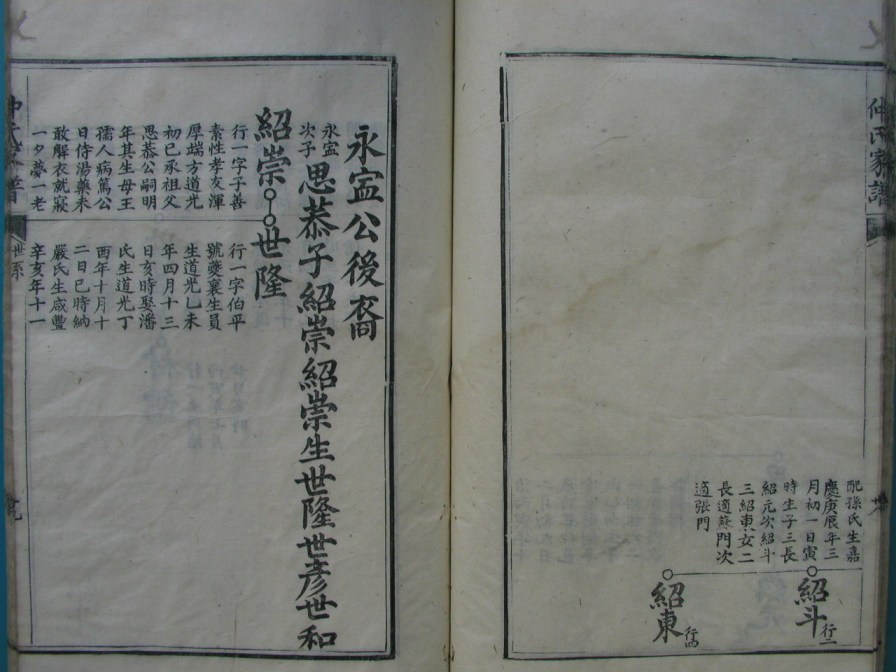 仲氏家譜
配孫氏生嘉
慶庚辰年三
月初一日寅
時生子三長
紹元次紹斗
三紹東女二
長適蘇門次
適張門
紹斗行二
紹東行四
永寍公後裔
永寍次子思恭子紹崇紹崇生世隆世彥世和
紹崇
行一字子善
素性孝友渾
厚端方道光
初巳承祖父
思恭公嗣明
年其生母王
孺人病篤公
日侍湯藥未
敢解衣就寢
一夕夢一老
世隆
行一字伯平
號夔襄生員
生道光乙未
年四月十三
日亥時娶潘
氏生道光丁
酉年十月十
二日巳時納
嚴氏生咸豐
辛亥年十一
世系